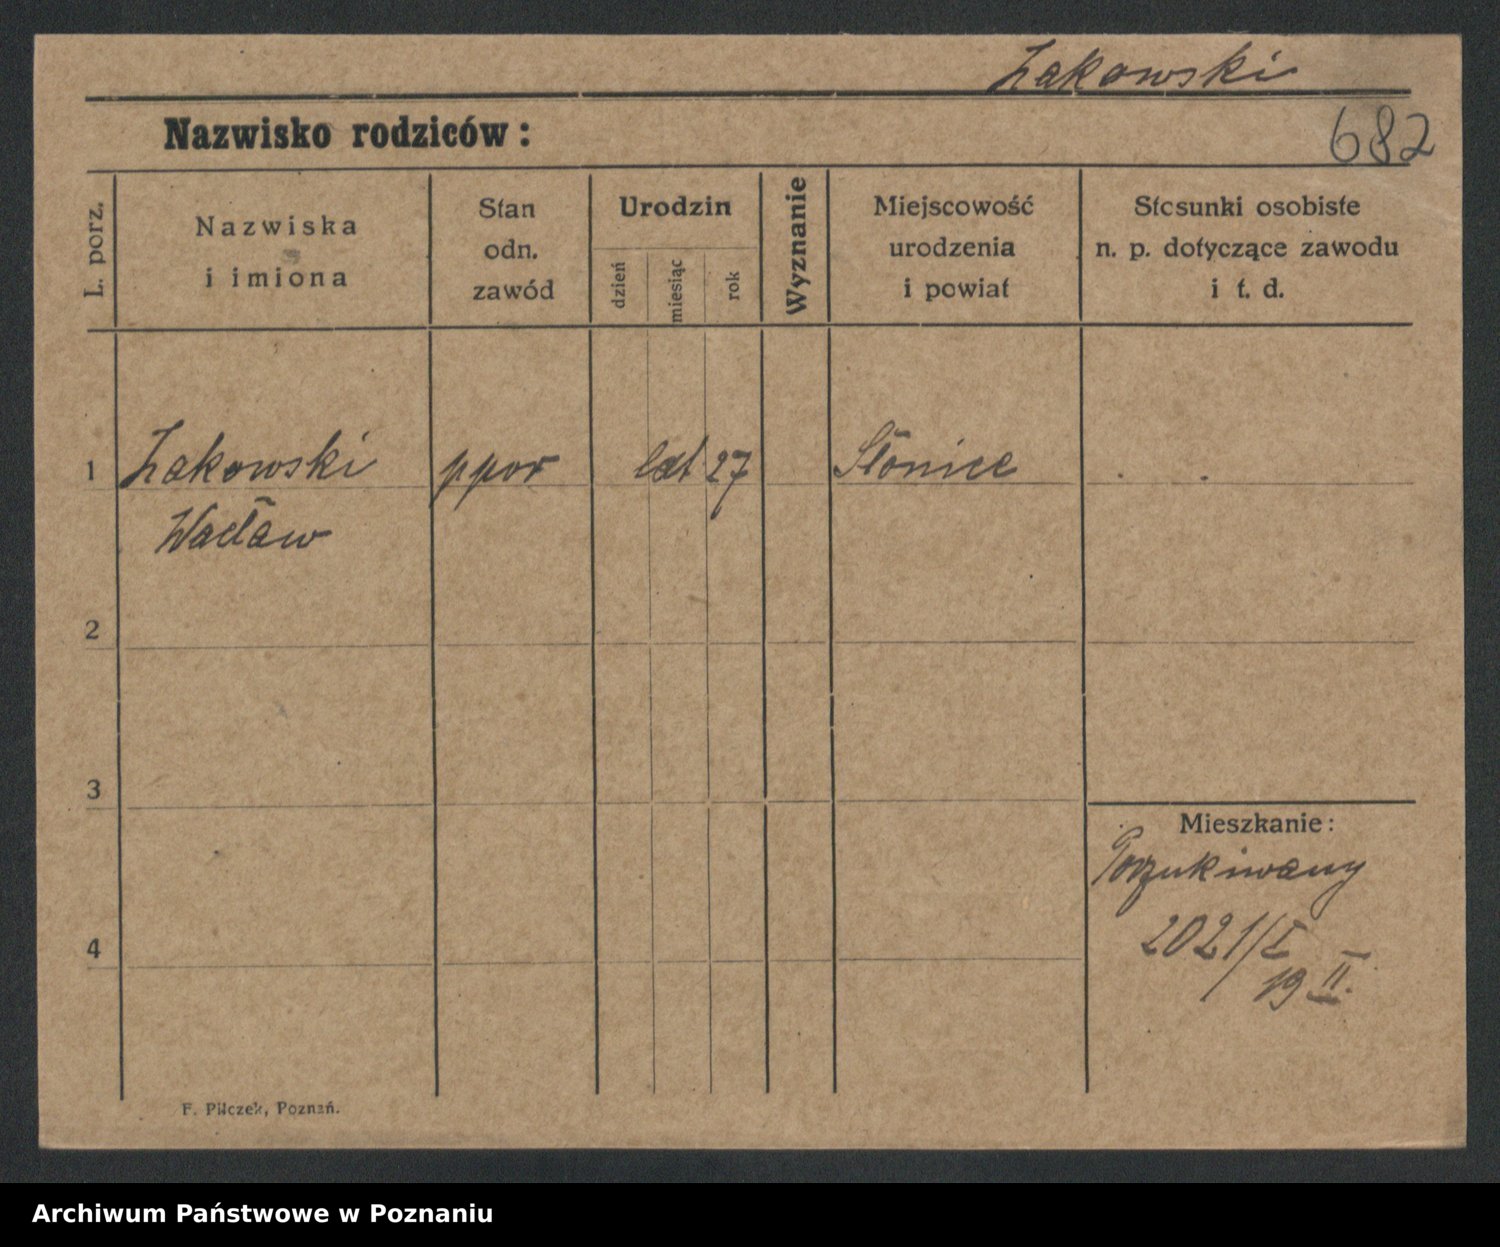 Żakowski
Nazwisko rodziców:
682
L. porz.
Nazwiska
i imiona
Stan
odn.
zawód
Urodzin
dzień
miesiąc
rok
Wyznanie
Miejscowość
urodzenia
i powiat
Stosunki osobiste
n. p. dotyczące zawodu
i t. d.
1
Żakowski
ppor
lat 27
Słonice
Wacław
2
3
Mieszkanie:
Poszukiwany
2021/I
19 II.
4
F. Pilczek, Poznań.
Archiwum Państwowe w Poznaniu